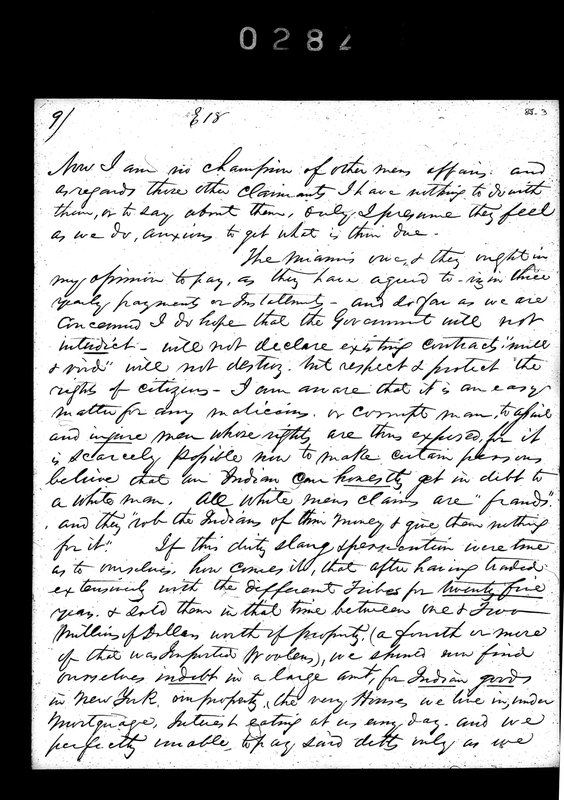 0282
9/ E18 85.3
Now I am no champion of other mens affairs. and
as regards those other claimants I have nothing to do with
them, or to say about them, only, I presume they feel
as we do, anxious to get what is thin due.
The Miamis owe, & they ought in
my opinion to pay, as they have agreed to - in three
yearly payments or Instalments - and so far as we are
concerned I do hope that the Government will not
interdict - will not declare existing contracts "null
& void" will not destroy. but respect & protect the
rights of citizens - I am aware that it is an easy
matter for any malicious. or corrupt man, to
and injure men whose rights are thus exposed, for it
is scarcely possible now to make certain persons
believe that an Indian can honestly get in debt to
a white man. All white mens claims are "frauds"
. and they "rob the Indians of thin money & give them nothing
for it". If this dirty slang & persecution were true
as to ourselves. how comes it, that after having traded
extensively with the different Tribes for twenty five
years. & sold them in that time between one & Two
Millions of Dollars worth of property, (a fourth or more
of that was Imported Woolens), we should now find
ourselves indebt in a large amt, for Indian goods
in New York. our property, the very Houses we live in, under
Mortguage, Interest eating at us evry day. and we
perfectly unable, to pay said debts only as we